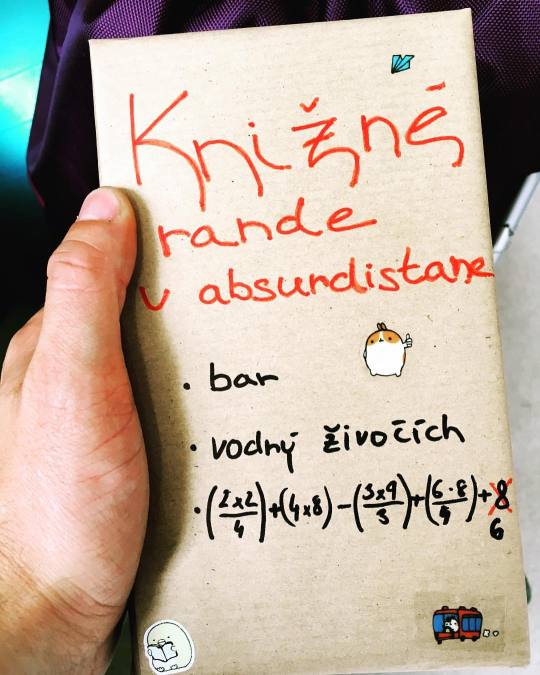 Knižné
rande
v absurdistane
• bar
• vodný živočích
• (2x2/4)+(4x8)-(3x9/3)+(6·8/4)+8
6